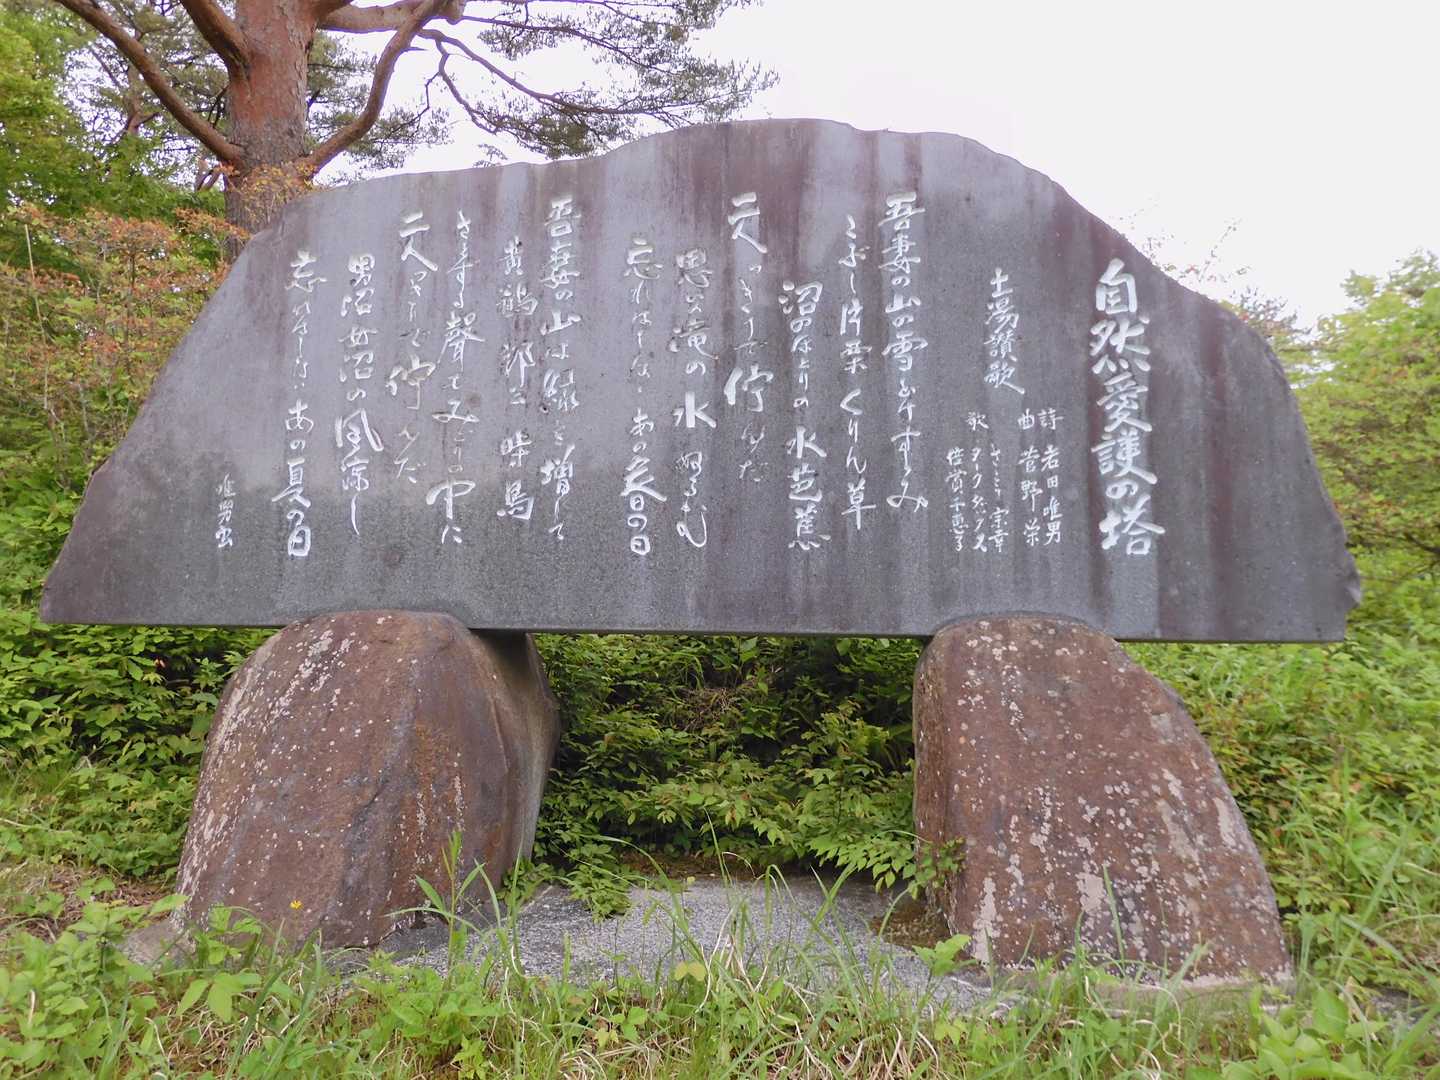 自然愛護の塔
土湯讃歌
詩 岩田唯男
曲 菅野栄
さとう宗幸
歌 ダークダックス
倍賞千恵子
吾妻の山の雪
こぶし片栗くりん草
沼のほとりの水芭蕉
二人っきりで佇んだ
思いの滝の水ぬるむ
忘れはしないあの春の日
吾妻の山は緑を増して
黄鶲郭公時鳥
さえずる聲もみどりの中に
二人っきりで佇んだ
男沼女沼の風涼し
忘れはしないあの夏の日
唯男